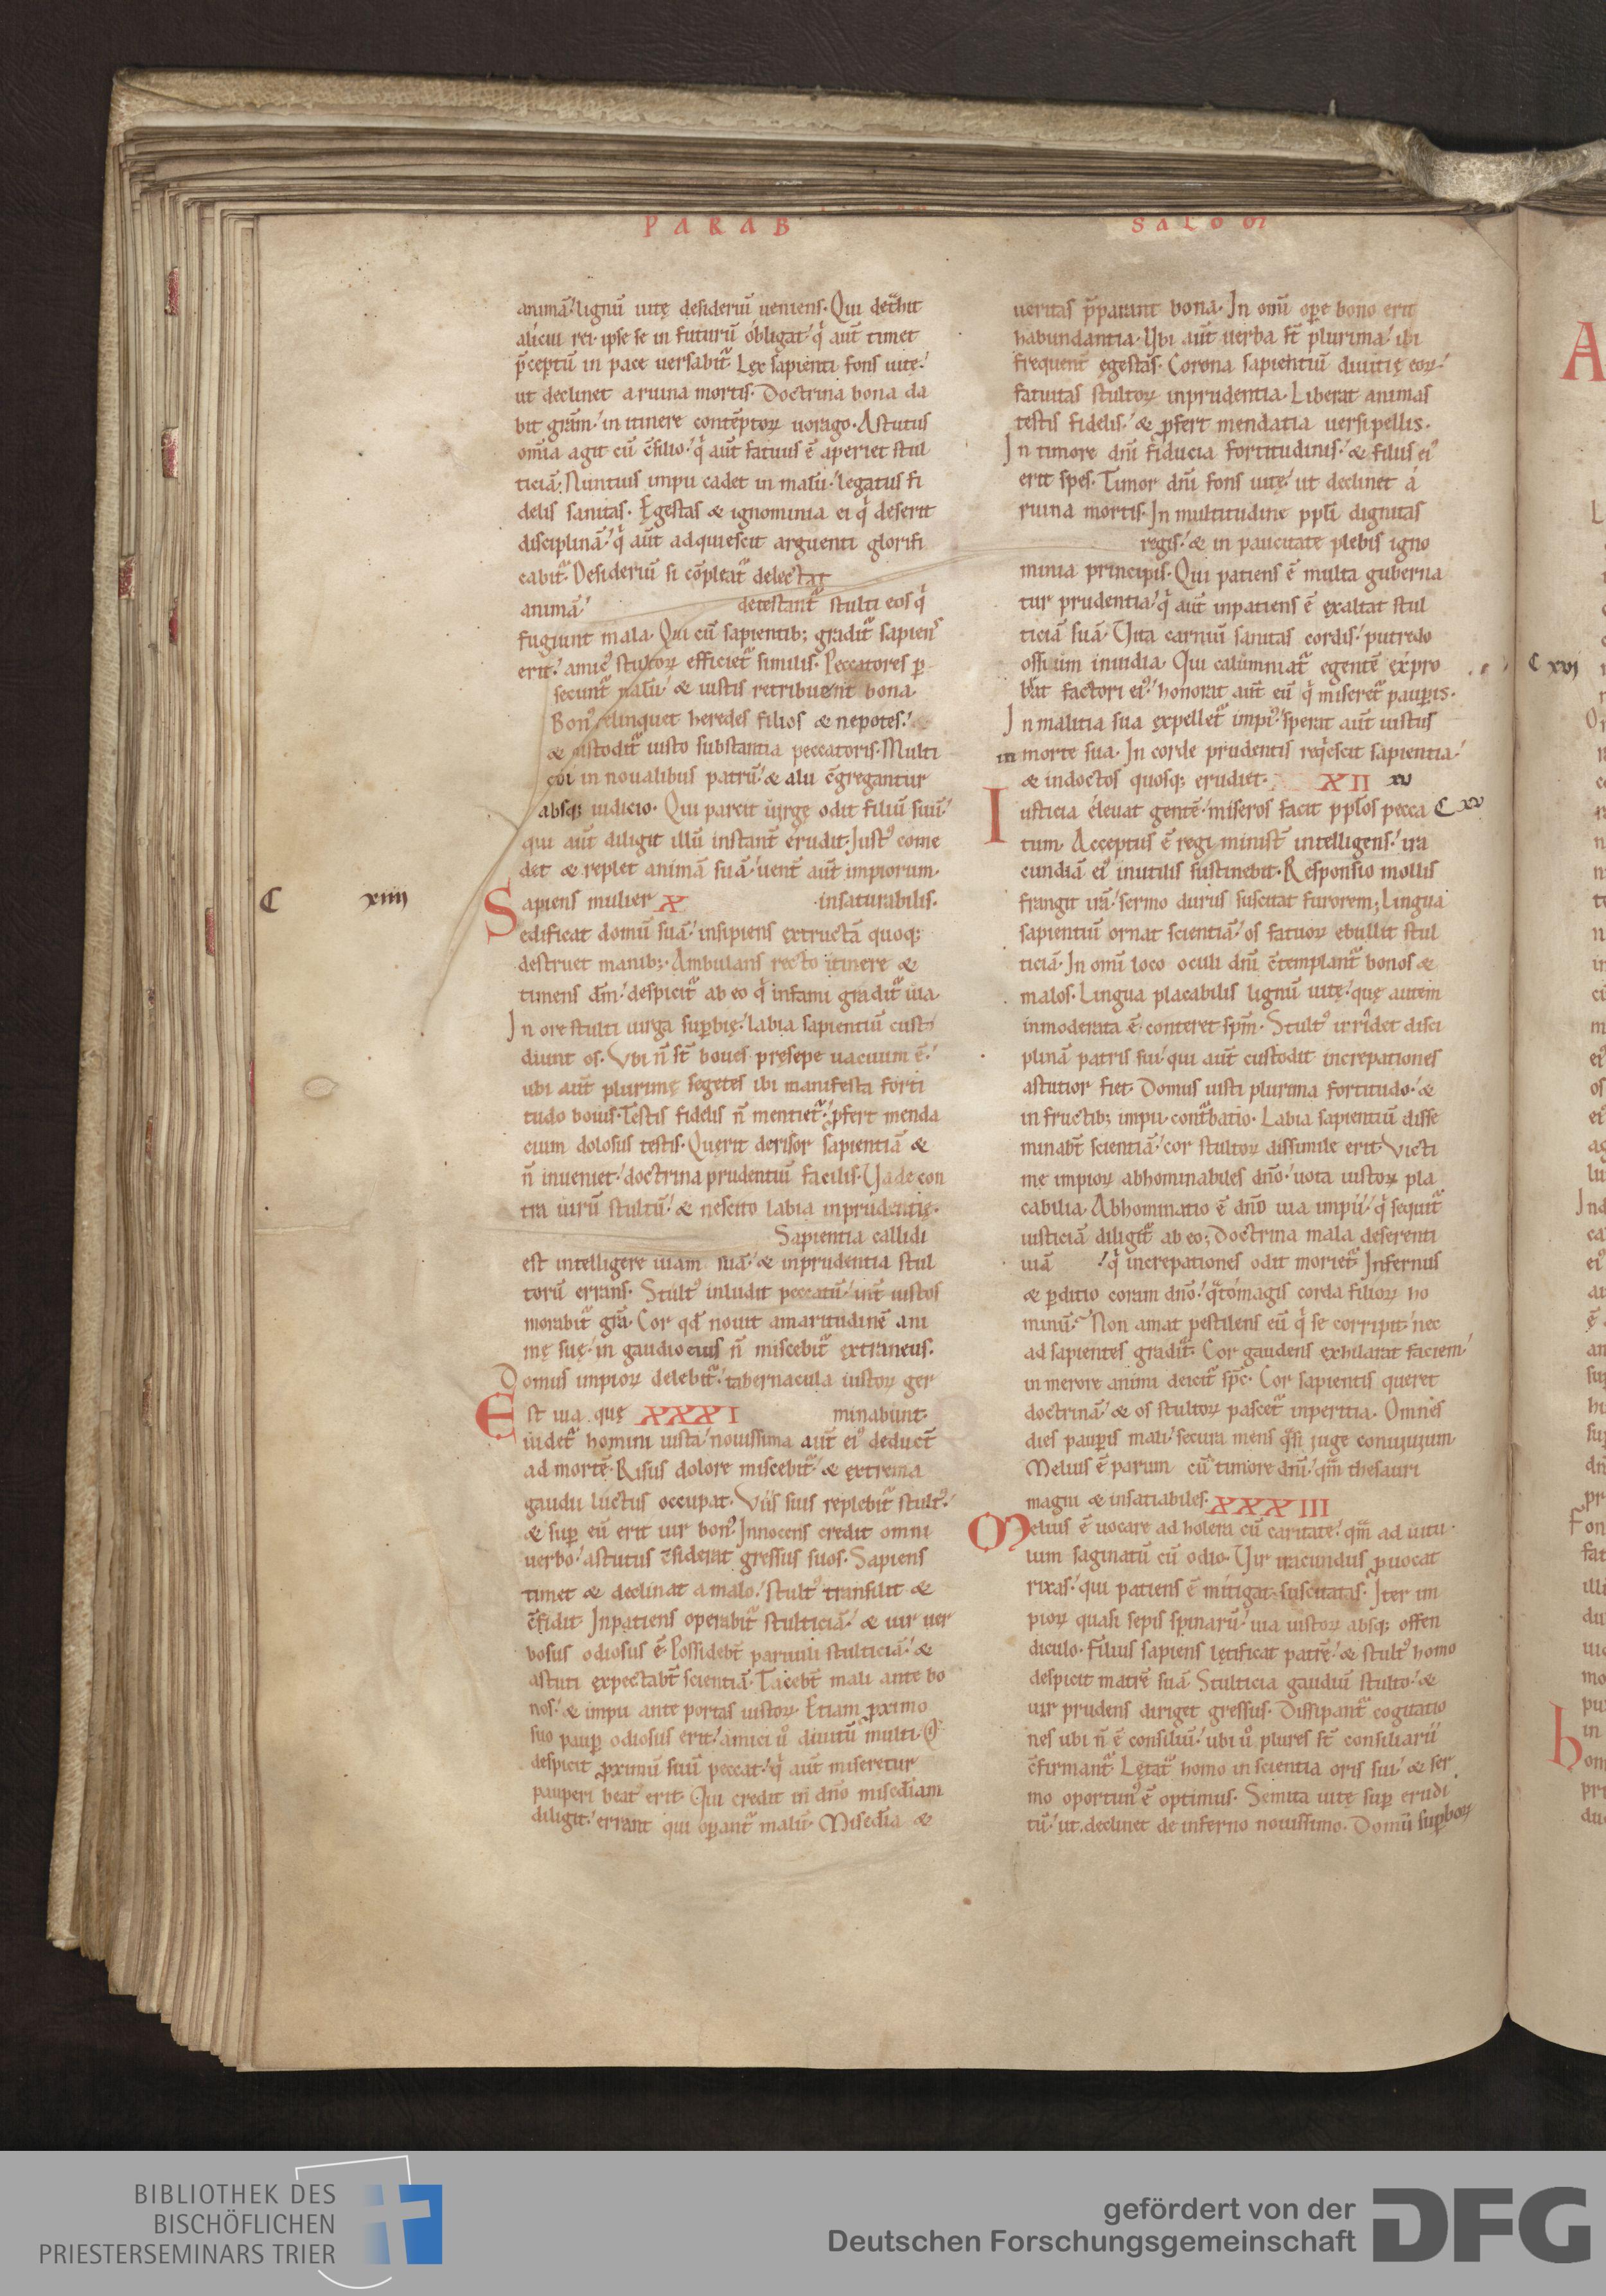 PARAB
SALOM
animā lignū uitę desideriū ueniens. Qui det̄hit
alicui rei ipse se in futurū obligat q̇ aut̄ timet
p̄ceptū in pace uersabit̄ Lex sapienti fons uitę
ut declinet a ruina mortis. Doctrina bona da
bit grām in itinere contēptoꝝ uorago. Astutus
omīa agit cū c̄silio q̇ aut̄ fatuus ē aperiet stul
ticiā. Nuntius impii cadet in malū legatus fi
delis sanitas. Egestas & ignominia ei q̇ deserit
disciplinā q̇ aut̄ adquiescit arguenti glorifi
cabit̄. Desideriū si cōpleat̄ delectat
animā detestant̄ stulti eos q̇
fugiunt mala. Qui cū sapientib; gradit̄ sapiens
erit amicꝰ stultoꝝ efficiet̄ similis. Peccatores ꝑ
secunt̄ malū & iustis retribuent bona.
Bonꝰ relinquet heredes filios & nepotes
& custodit̄ iusto substantia peccatoris. Multi
cibi in noualibus patrū & alii c̄gregantur
absq; iudicio. Qui parcit uirgę odit filiū suū
qui aut̄ diligit illū instant̄ erudit. Justꝰ come
det & replet animā suā uent̄ aut̄ impiorum
C xiiii
Sapiens mulier X insaturabilis.
edificat domū suā insipiens extructā quoq;
destruet manib;. Ambulans recto itinere &
timens dm̄ despicit̄ ab eo q̇ infami gradit̄ uia.
In ore stulti uirga supbię labia sapientiū custo
diunt os. Vbi n̄ st̄ boues pręsepe uacuum ē
ubi aut̄ plurimę segetes ibi manifesta forti
tudo bouis. Testis fidelis n̄ mentiet̄ ꝓfert menda
cium dolosus testis. Querit derisor sapientiā &
n̄ inueniet doctrina prudentiū facilis. Vade con
tra uirū stultū & nescito labia inprudentię.
Sapientia callidi
est intelligere uiam suā & inprudentia stul
torū errans. Stultꝰ inludit peccatū int̄ iustos
morabit̄ grā. Cor qd̄ nouit amaritudinē ani
mę suę in gaudio eius n̄ miscebit̄ extraneus.
Domus impioꝝ delebit̄ tabernacula iustoꝝ ger
Est uia quę XXXI minabunt.
uidet̄ homini iusta nouissima aut̄ eiꝰ deduct̄
ad mortē. Risus dolore miscebit̄ & extrema
gaudii luctus occupat. Viis suis replebit̄ stultꝰ
& sup eū erit uir bonꝰ. Innocens credit omni
uerbo astutus c̄siderat gressus suos. Sapiens
timet & declinat a malo stultꝰ transilit &
c̄fidit. Inpatiens operabit̄ stulticiā & uir uer
bosus odiosus ē. Possidebt̄ paruuli stulticiā &
astuti expectabt̄ scientiā. Iacebt̄ mali ante bo
nos & impii ante portas iustoꝝ. Etiam ꝓximo
suo paup odiosus erit amici u̇ diuitū multi. Q
despicit ꝓximū suū peccat q̇ aut̄ miseretur
pauperi beatꝰ erit. Qui credit in dn̄o misediam
diligit errant qui oꝑant̄ malū. Misedīa &
ueritas p̄parant bona. In omī oꝑe bono erit
habundantia. Vbi aut̄ uerba st̄ plurima ibi
frequent̄ egestas. Corona sapientiū diuitię eoꝝ
fatuitas stultoꝝ inprudentia. Liberat animas
testis fidelis & ꝓfert mendatia uersipellis.
In timore dn̄i fiducia fortitudinis & filiis eiꝰ
erit spes. Timor dn̄i fons uitę ut declinet á
ruina mortis. In multitudine ppl̄i dignitas
regis & in paucitate plebis igno
minia principis. Qui patiens ē multa guberna
tur prudentia q̇ aut̄ inpatiens ē exaltat stul
ticiā suā. Vita carniū sanitas cordis putredo
ossium inuidia. Qui calumniat̄ egentē expro
C xvi
bat̄ factori eiꝰ honorat aut̄ eū q̇ miseret̄ pauꝑis.
In malitia sua expellet̄ impiꝰ sperat aut̄ iustus
in morte sua. In corde prudentis req̇escit sapientia
& indoctos quosq; erudiet. XII xv
Iusticia eleuat gentē miseros facit ppl̄os pecca C xv
tum. Acceptus ē regi minist̄ intelligens ira
cundiā eiꝰ inutilis sustinebit. Responsio mollis
frangit irā sermo durus suscitat furorem; Lingua
sapientiū ornat scientiā os fatuoꝝ ebullit stul
ticiā. In omī loco oculi dn̄i c̄templant̄ bonos &
malos. Lingua placabilis lignū uitę quę autem
inmoderata ē conteret spm̄. Stultꝰ irridet disci
plinā patris sui qui aut̄ custodit increpationes
astutior fiet. Domus iusti plurima fortitudo &
in fructib; impii cont̄batio. Labia sapientiū disse
minabt̄ scientiā cor stultoꝝ dissimile erit. Victi
mę impioꝝ abhominabiles dn̄o uota iustoꝝ pla
cabilia. Abhominatio ē dn̄o uia impii q̇ sequit̄
iusticiā diligit̄ ab eo; Doctrina mala deserenti
uiā q̇ increpationes odit moriet̄. Infernus
& ꝑditio coram dn̄o q̄tomagis corda filioꝝ ho
minū. Non amat pestilens eū q̇ se corripit nec
ad sapientes gradit̄. Cor gaudens exhilarat faciem
in merore animi deicit̄ sp̄c. Cor sapientis queret
doctrinā & os stultoꝝ pascet̄ inperitia. Omnes
dies pauꝑis mali secura mens q̄si iuge conuiuium
Melius ē parum cū timore dn̄i qm̄ thesauri
magni & insatiabiles. XXXIII
Melius ē uocare ad holera cū caritate qm̄ ad uitu
lum saginatū cū odio. Vir iracundus ꝓuocat
rixas qui patiens ē mitigat suscitatas. Iter im
pioꝝ quasi sepis spinarū uia iustoꝝ absq; offen
diculo. Filius sapiens lętificat patrē & stultꝰ homo
despicit matrē suā. Stulticia gaudiū stulto &
uir prudens diriget gressus. Dissipant̄ cogitatio
nes ubi n̄ ē consiliū ubi u̇ plures st̄ consiliarii
c̄firmant̄. Lętat̄ homo in scientia oris sui & ser
mo oportunꝰ ē optimus. Semita uitę sup erudi
tū ut declinet de inferno nouissimo. Domū supboꝝ
BIBLIOTHEK DES
BISCHÖFLICHEN
PRIESTERSEMINARS TRIER
gefördert von der
Deutschen Forschungsgemeinschaft
DFG